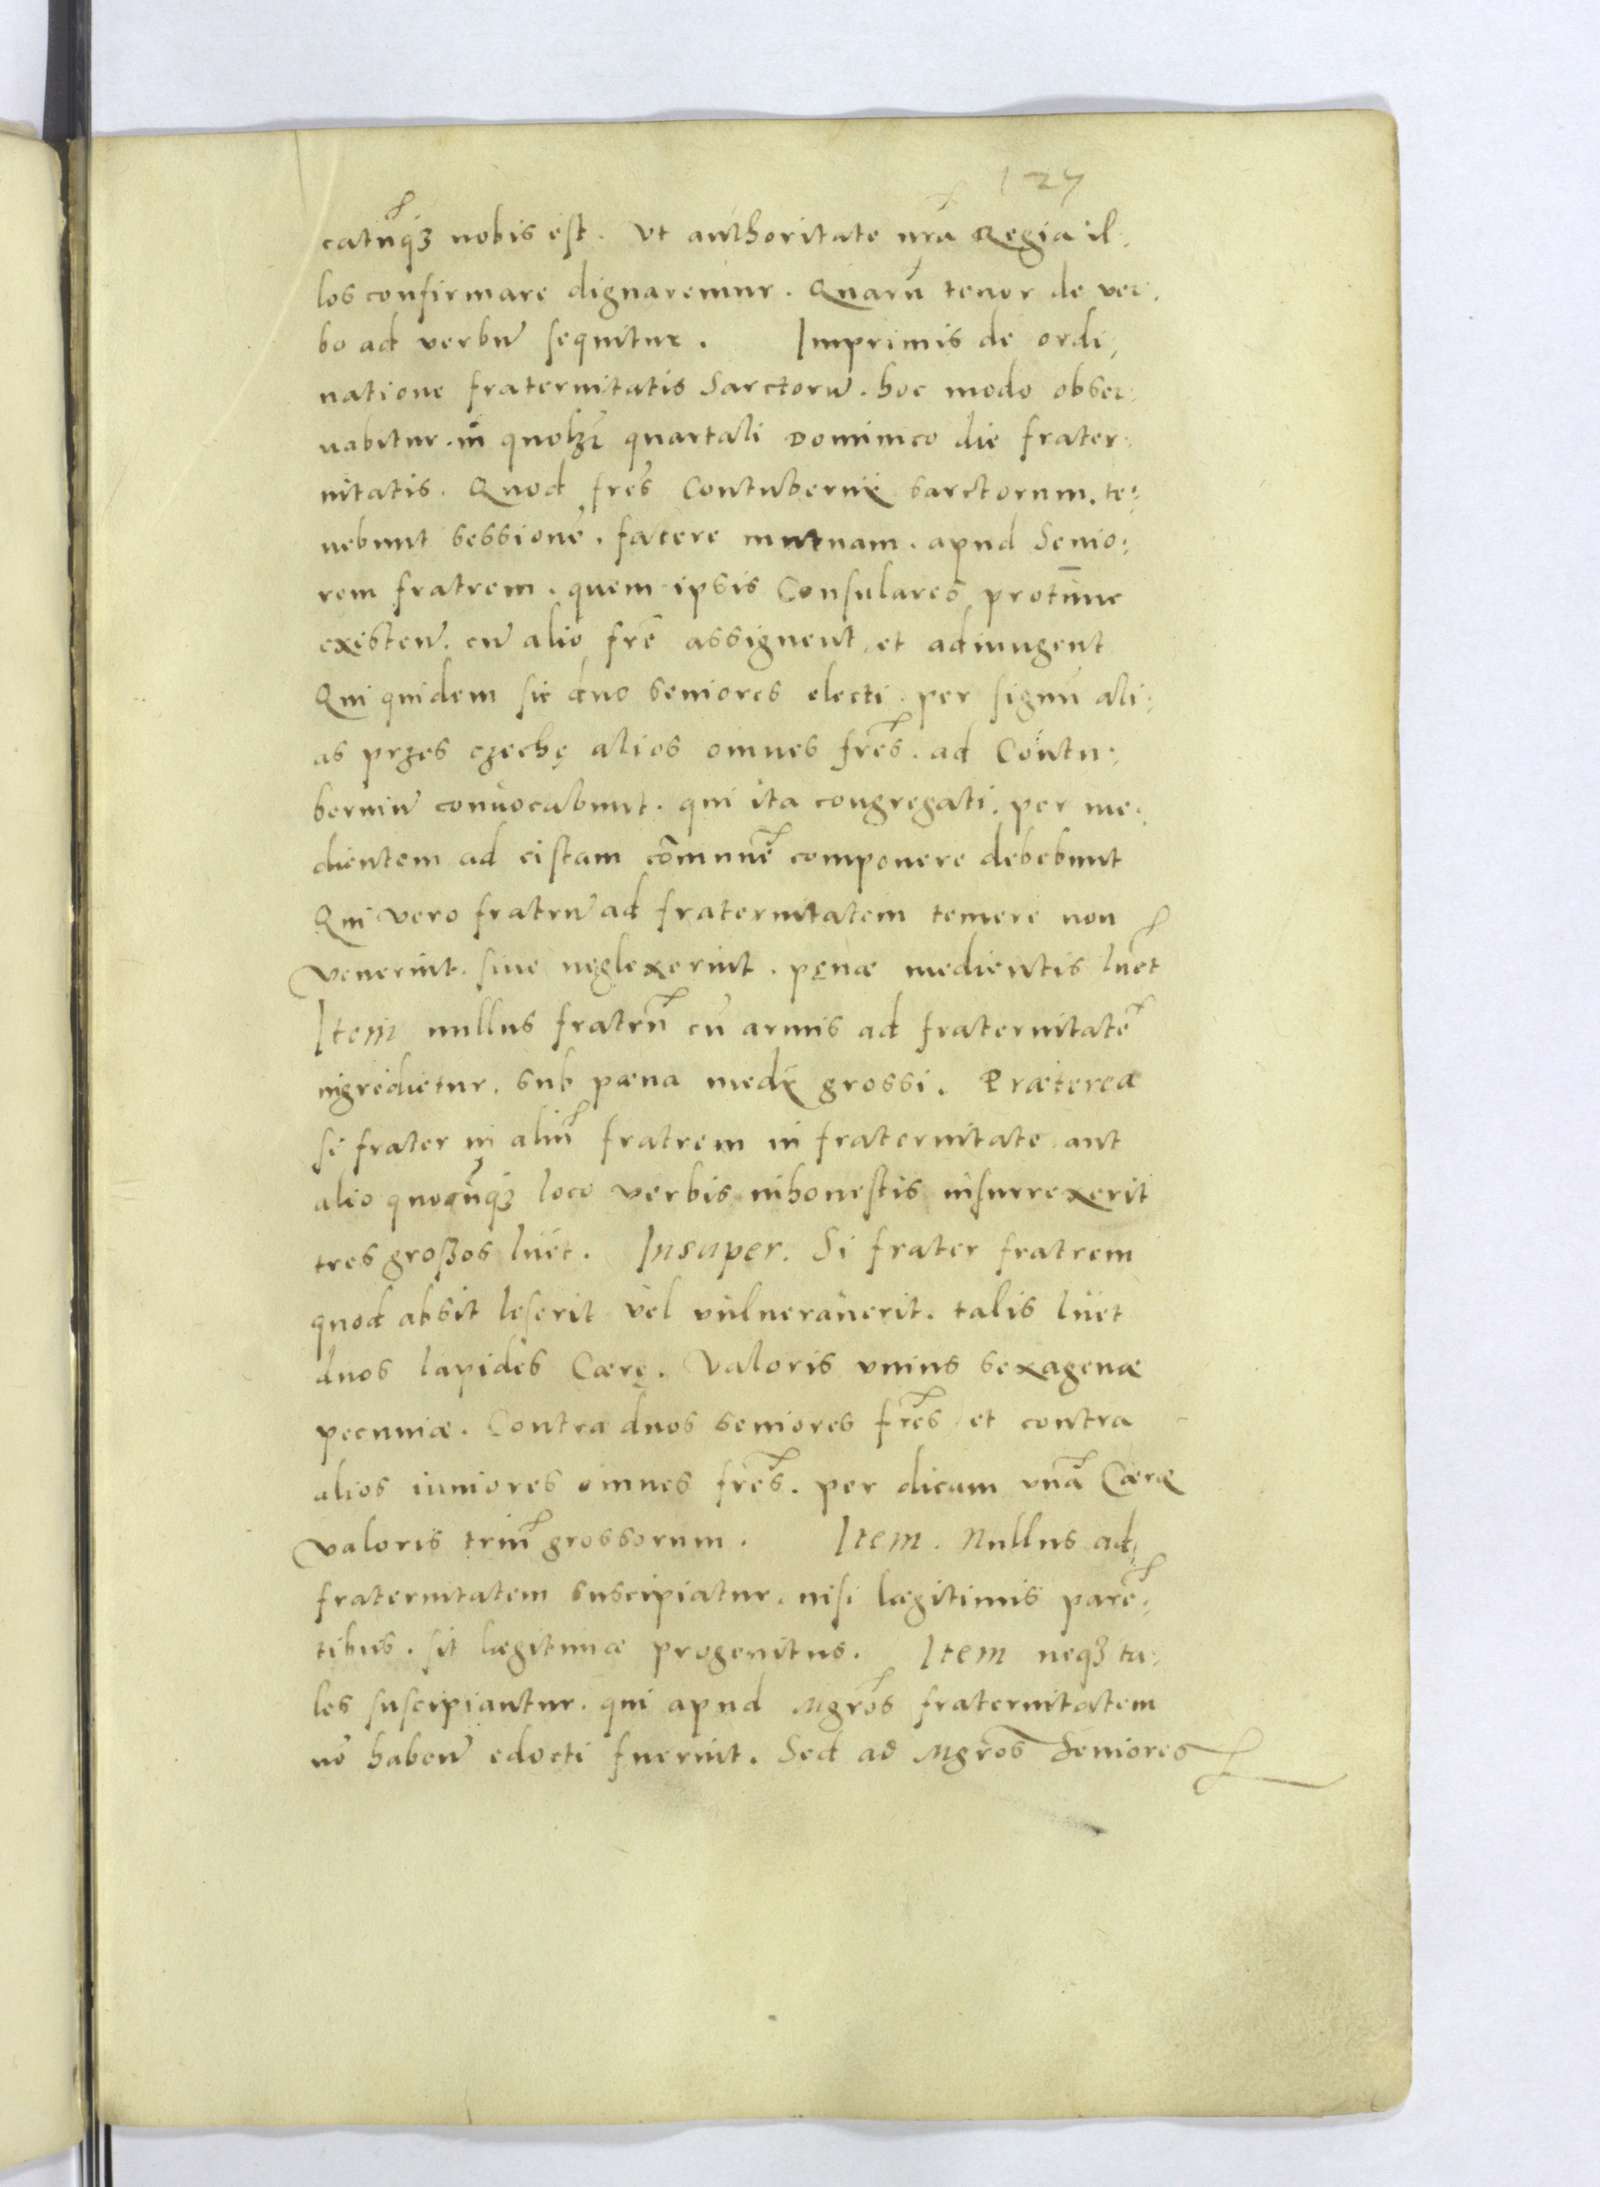 127
catūq3 nobis est. Vt authoritate nr̄a Regia il,
los confirmare dignaremur. Quarū tenor de ver,
bo ad verbū sequitur. Imprimis de ordi,
natione fraternitatis Sarctorū. hoc modo obser:
uabitur. in quolz quartali Dominico die frater,
nitatis. Quod fres̄ Contubernii sarctorum. te:
nebunt sessionē. facere mutuam. apud Senio:
rem fratrem. quem ipsis Consulares protūnc
existen̄. cū alio frē assignent et adiungent
Qui quidem sic duo seniores electi. per signū ali:
as przes czechę alios omnes frēs. ad Contu:
berniū conuocabunt. qui ita congregati. per me,
dientem ad cistam cōmunē componere debebunt
Qui vero fratrū ad fraternitatem temere non
venerint. siue neglexerint. pęnæ medientis luēt
Item nullus fratrū cū armis ad fraternitatē
ingredietur. sub pæna medii grossi. Præterea
si frater in aliū fratrem in fraternitate aut
alio quocūq3 loco verbis inhonestis insurrexerit
tres großos luet. Insuper. Si frater fratrem
quod absit leserit vel vulnerauerit. talis luet
duos lapides Cærę. Valoris vnius sexagenæ
pecuniæ. Contra duos seniores frēs et contra
alios iuniores omnes frēs. per dicam vnā Cæræ
valoris triū grossorum. Item. Nullus ad,
fraternitatem suscipiatur. nisi lægitimis parē:
tibus. sit lægitimæ progenitus. Item neq3 ta:
les suscipiantur. qui apud Mgrōs fraternitatem
nō haben̄ edocti fuerint. Sed ad Mgrōs Seniores